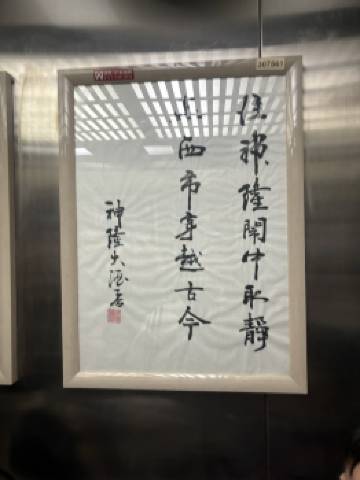 住神隆鬧中取靜
西市穿越古今
神隆大酒店